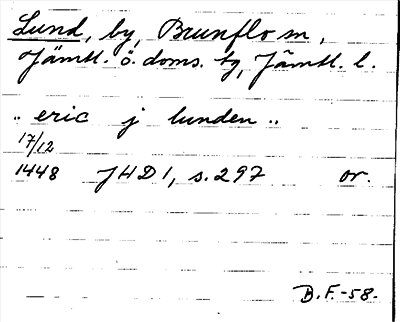 Lund, by, Brunflo sn,
Jämtl. ö. doms. tg, Jämtl. l.
„ eric j lunden „
17/12
1448 JHD 1, s. 297 or.
B.F.-58.